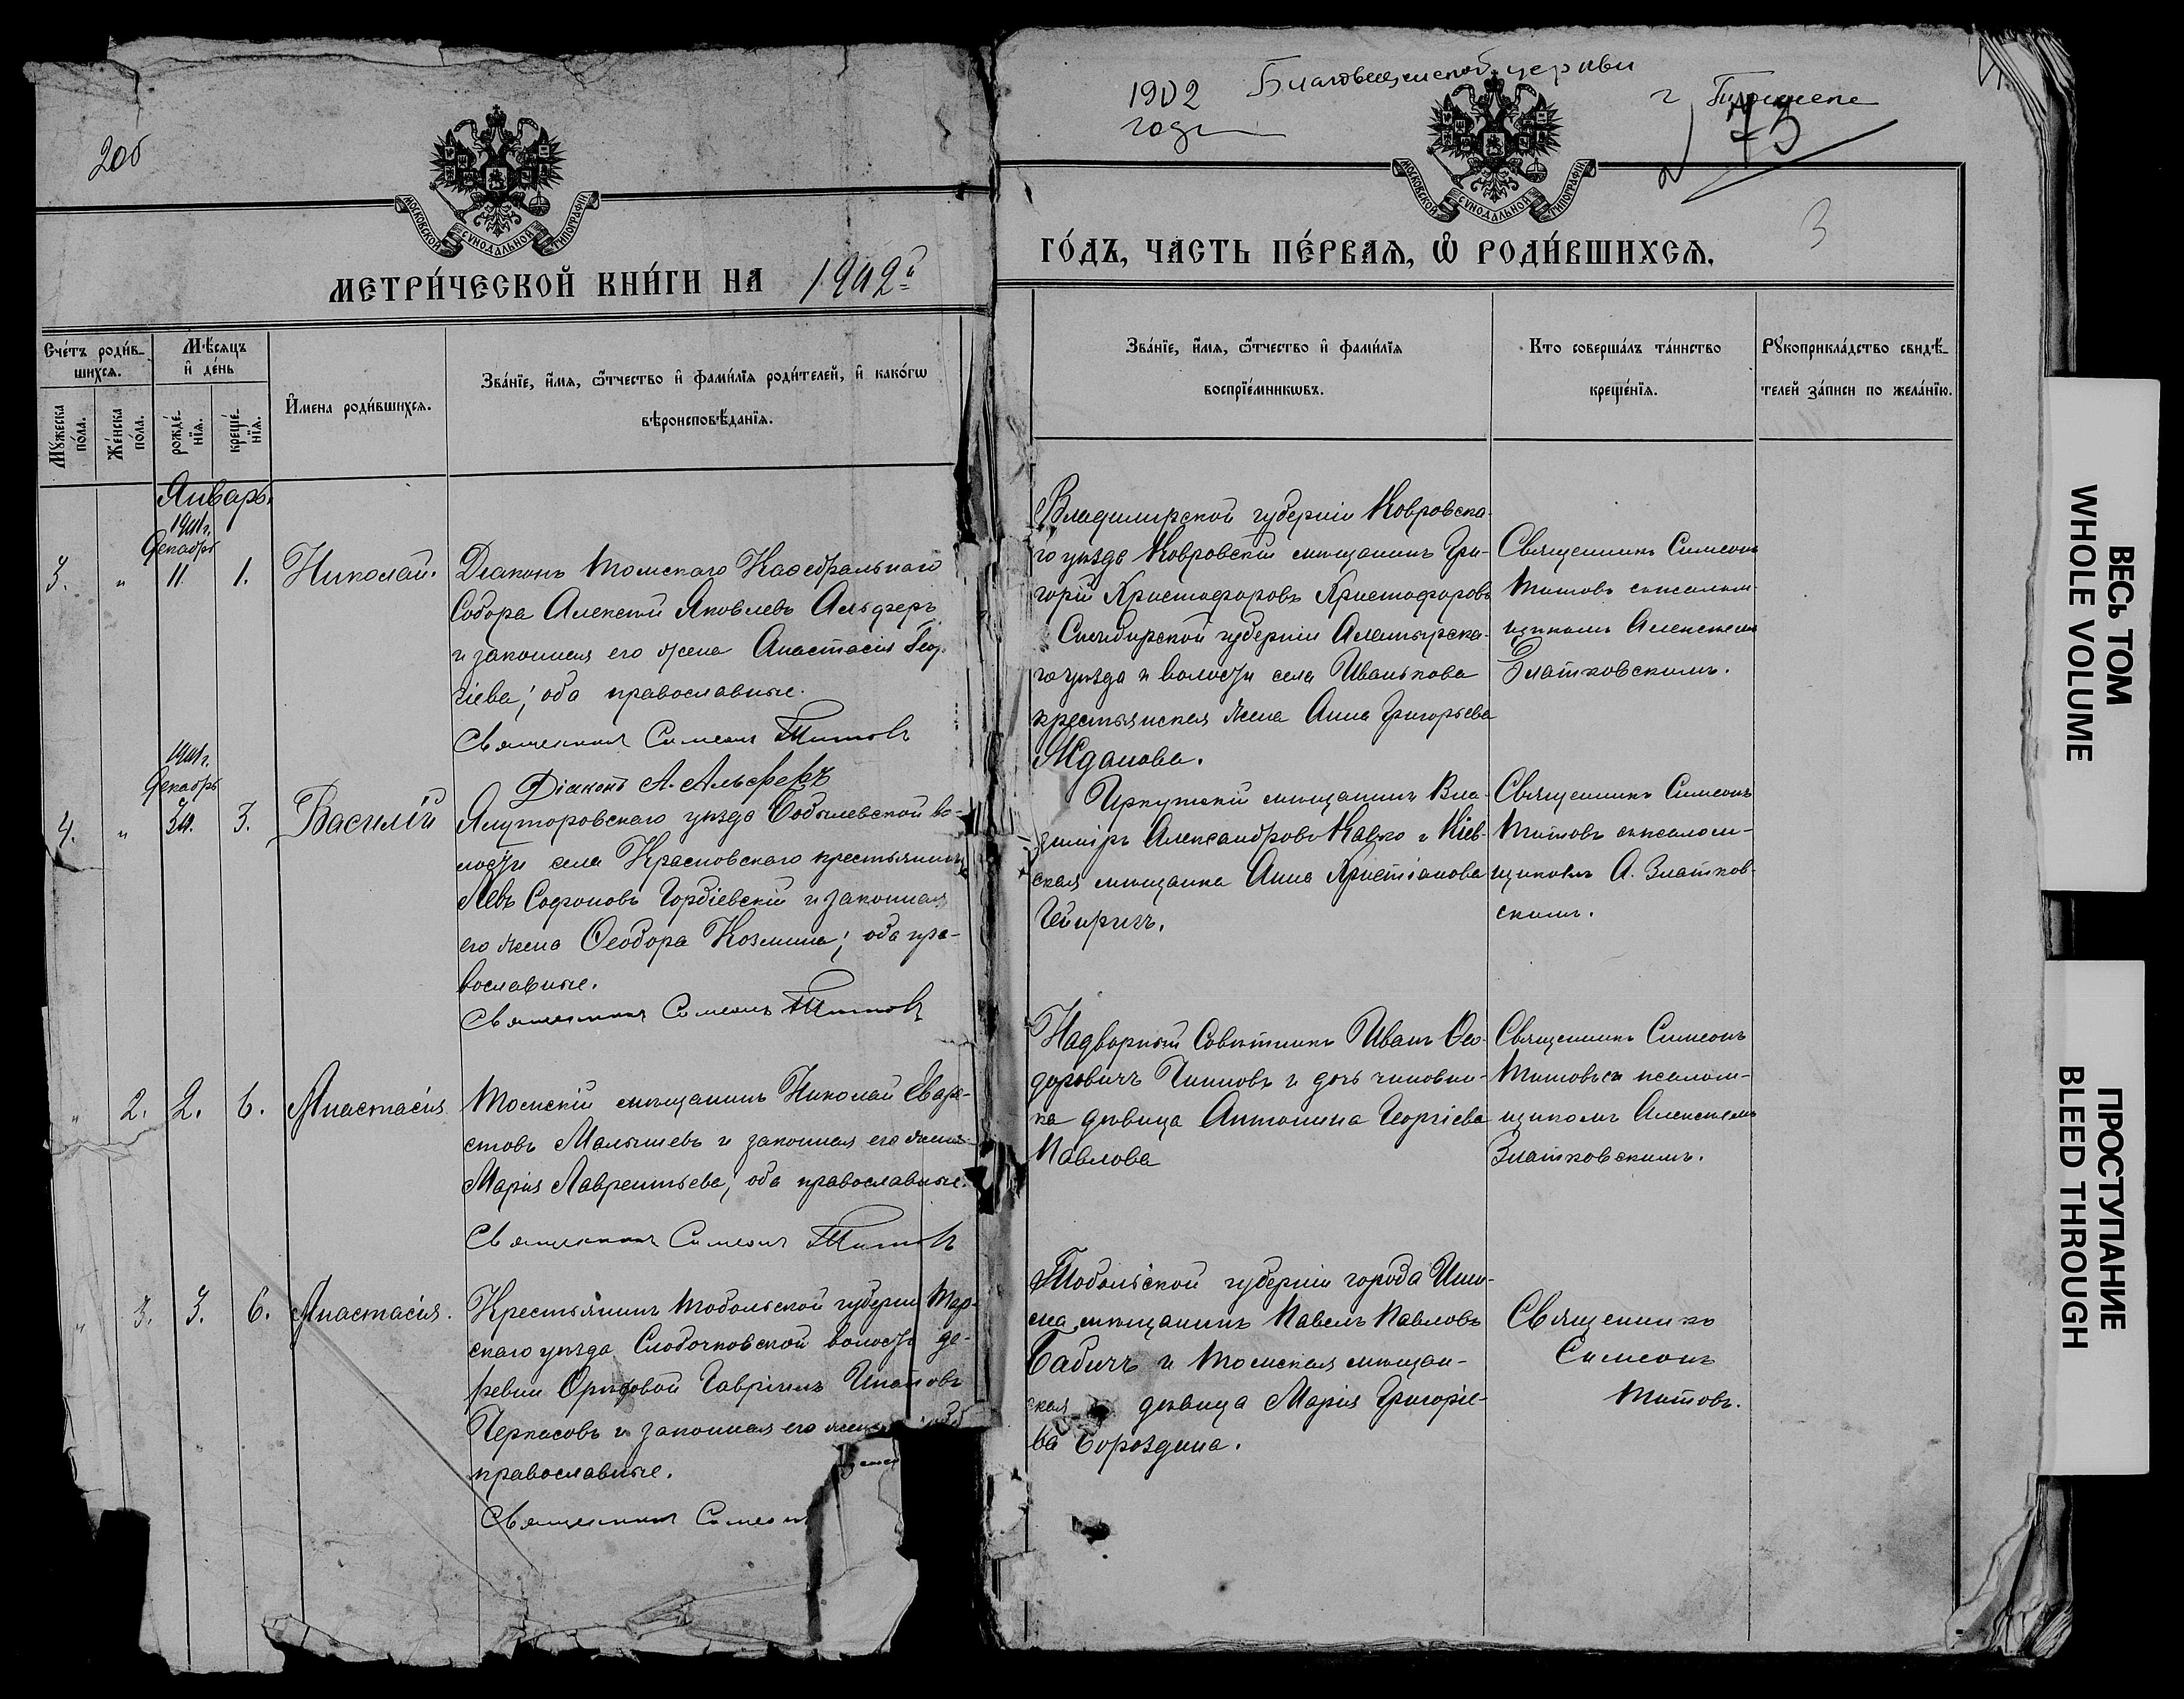 2об
МОСКОВСКОЙ СѴНОДАЛЬНОЙ ТИПОГРАФІИ
МЕТРИ́ЧЕСКОЙ КНИ́ГИ НА 1902й
Сче́тъ роди́в-
шихсѧ.
Мѣ́сѧцъ
и҆ де́нь
Мꙋ́жеска
по́ла.
Же́нска
по́ла.
рожде́-
нїѧ.
креще́-
нїѧ.
И҆мена роди́вшихсѧ.
Зва́нїе, и҆́мѧ, ѻ҆́тчество и҆ фами́лїѧ роди́телей, и҆ како́гѡ
вѣроисповѣ́данїѧ.
Январь.
1901 г.
Декабрь
3. " 11. 1. Николай.
Діаконъ Томскаго Каѳедральнаго
Собора Алексій Яковлевъ Альферъ
и законная его жена Анастасія Геор-
гіева; оба православные.
Священникъ Симеонъ Титовъ
Діаконъ А. Альферъ
1901 г.
Декабрь
4. " 30. 3. Василій
Ялуторовскаго уѣзда во-
лости села Красновскаго крестьянинъ
Левъ Софоновъ Гордіевскій и законная
его жена Ѳеодора Козмина; оба пра-
вославные.
Священникъ Симеонъ Титовъ
" 2. 2. 6. Анастасія
Томскій мѣщанинъ Николай Евари-
стовъ Малышевъ и законная его жена
Марія Лаврентьева; оба православные.
Священникъ Симеонъ Титовъ
" 3. 3. 6. Анастасія.
Крестьянинъ Тобольской губерніи Тар-
скаго уѣзда Слободчиковской волости де-
ревни Гавріилъ
Черкасовъ и законная его жена
православные.
Священникъ Симеонъ
1902 Благовещенской церкви
года
г Томска
73
3
МОСКОВСКОЙ СѴНОДАЛЬНОЙ ТИПОГРАФІИ
ГО́ДЪ, ЧАСТЬ ПЕ́РВАѦ, Ѡ҆ РОДИ́ВШИХСѦ.
Зва́нїе, и҆́мѧ, ѻ҆́тчество и҆ фами́лїѧ
воспрїе́мникѡвъ.
Кто соверша́лъ та́инство
креще́нїѧ.
Рꙋкоприкла́дство свидѣ́-
телей за́писи по жела́нїю.
Владимирской губерніи Ковровска-
го уѣзда Ковровскій мѣщанинъ Гри-
горій Христофоровъ Христофоровъ
Симбирской губерніи Алатырска-
го уѣзда и волости села Иванькова
крестьянская жена Анна Григорьева
Жданова.
Священникъ Симеонъ
Титовъ съ псалом-
щикомъ Алексѣемъ
Златковскимъ.
Иркутскій мѣщанинъ Вла-
диміръ Александровъ и Кіев-
ская мѣщанка Анна Христіанова
Священникъ Симеонъ
Титовъ съ псалом-
щикомъ А. Златков-
скимъ.
Надворный Совѣтникъ Иванъ Ѳео-
доровичъ и дочь чиновни-
ка дѣвица Антонина Георгіева
Павлова
Священникъ Симеонъ
Титовъ съ псалом-
щикомъ Алексѣемъ
Златковскимъ.
Тобольской губерніи города Иши-
ма мѣщанинъ Павелъ Павловъ
Бабичъ и Томская мѣщан-
ская дѣвица Марія Григоріе-
ва Бороздина.
Священникъ
Симеонъ
Титовъ.
ВЕСЬ ТОМ
WHOLE VOLUME
ПРОСТУПАНИЕ
BLEED THROUGH